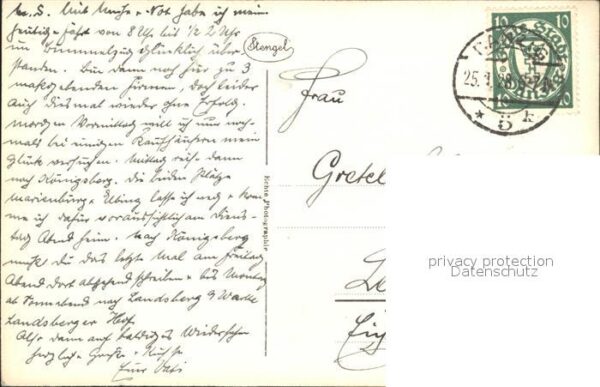 N. S. Mit Mühe + Not habe ich mein
heutige Fahrt von 8 Uhr bis ½ 2 Uhr
im Bummelzug glücklich über
standen. Bin dann noch hier zu 3
maßgebenden Firmen, doch leider
Auch dies mal wieder ohne Erfolg.
morgen Vormittag will ich nun noch
mals bei einigen Kaufhäusern mein
Glück versuchen. Mittag reise dann
nach Königsberg. Die beiden Plätze
Marienburg + Elbing lasse ich weg + kom
me ich dafür voraussichtlich am Diens-
tag Abend heim. Nach Königsberg
mußt du das letzte Mal am Freitag
Abend dort abgehend schreiben + bis Montag
ab Sonnabend nach Landsberg a Warte
Landsberger Hof.
Also dann auf baldiges Wiedersehn
herzlich Grüße + Küsse
Euer
Stengel
Echte Photographie
Frau
Gretel
10
10
10
10
25.
5 k
privacy protection
Datenschutz